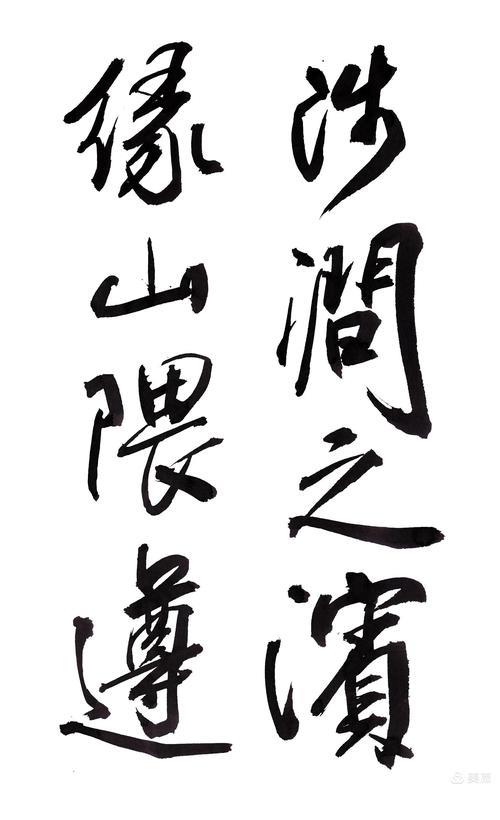 涉澗之濱
缘山隈遵